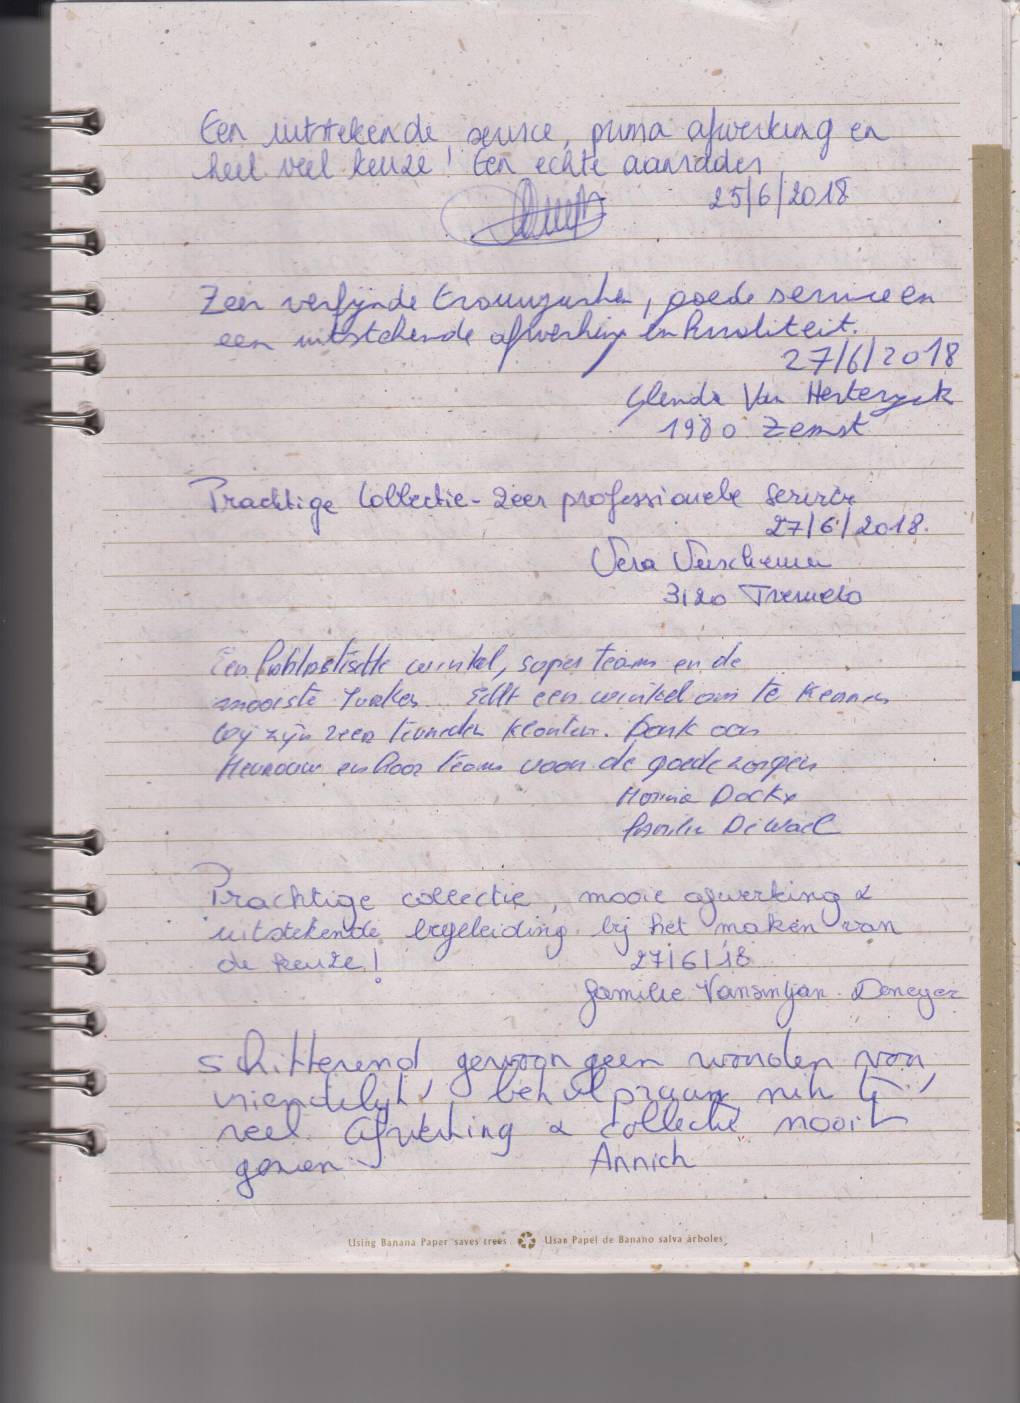 Een uitstekende service, prima afwerking en
heel veel keuze! Een echte aanrader
25/6/2018
Zeer verfijnde , goede service en
een uitstekende afwerking en kwaliteit.
27/6/2018
Glenda Van
1980 Zemst
Prachtige Collectie - zeer professionele Service
27/6/2018.
Vera
3120 Tremelo
Een fantastische winkel, super team en de
mooiste . Echt een winkel om te kennen
Wij zijn zeer tevreden klanten. Dank aan
Mevrouw en haar team voor de goede zorgen
Dockx
familie De Wael
Prachtige collectie, mooie afwerking &
uitstekende begeleiding bij het maken van
de keuze!
27/6/18
familie Deneyer
schitterend gewoon geen woorden voor,
vriendelijk, behulpzaam
veel. afwerking & collectie nooit
gezien
Annick
Using Banana Paper saves trees Usar Papel de Banano salva árboles